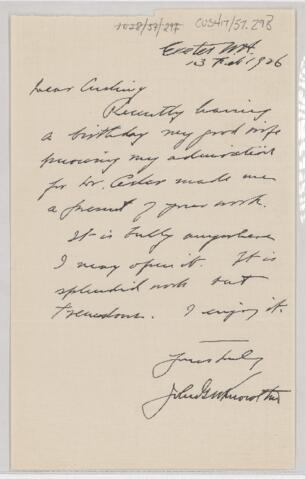 1028/57/298 CUS417/57.298
Exeter N.H.
13 Feb 1926
Dear Cushing
Recently having
a birthday my good wife
knowing my admiration
for Dr. Osler made me
a present of your work.
It is bully anywhere
I may open it. It is
splendid work but
tremendous. I enjoy it.
Yours truly